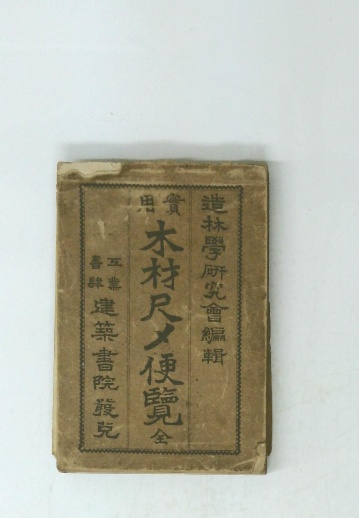 造林學研究會編輯
實用
木材尺〆便覽 全
工業書肆
建築書院發兌